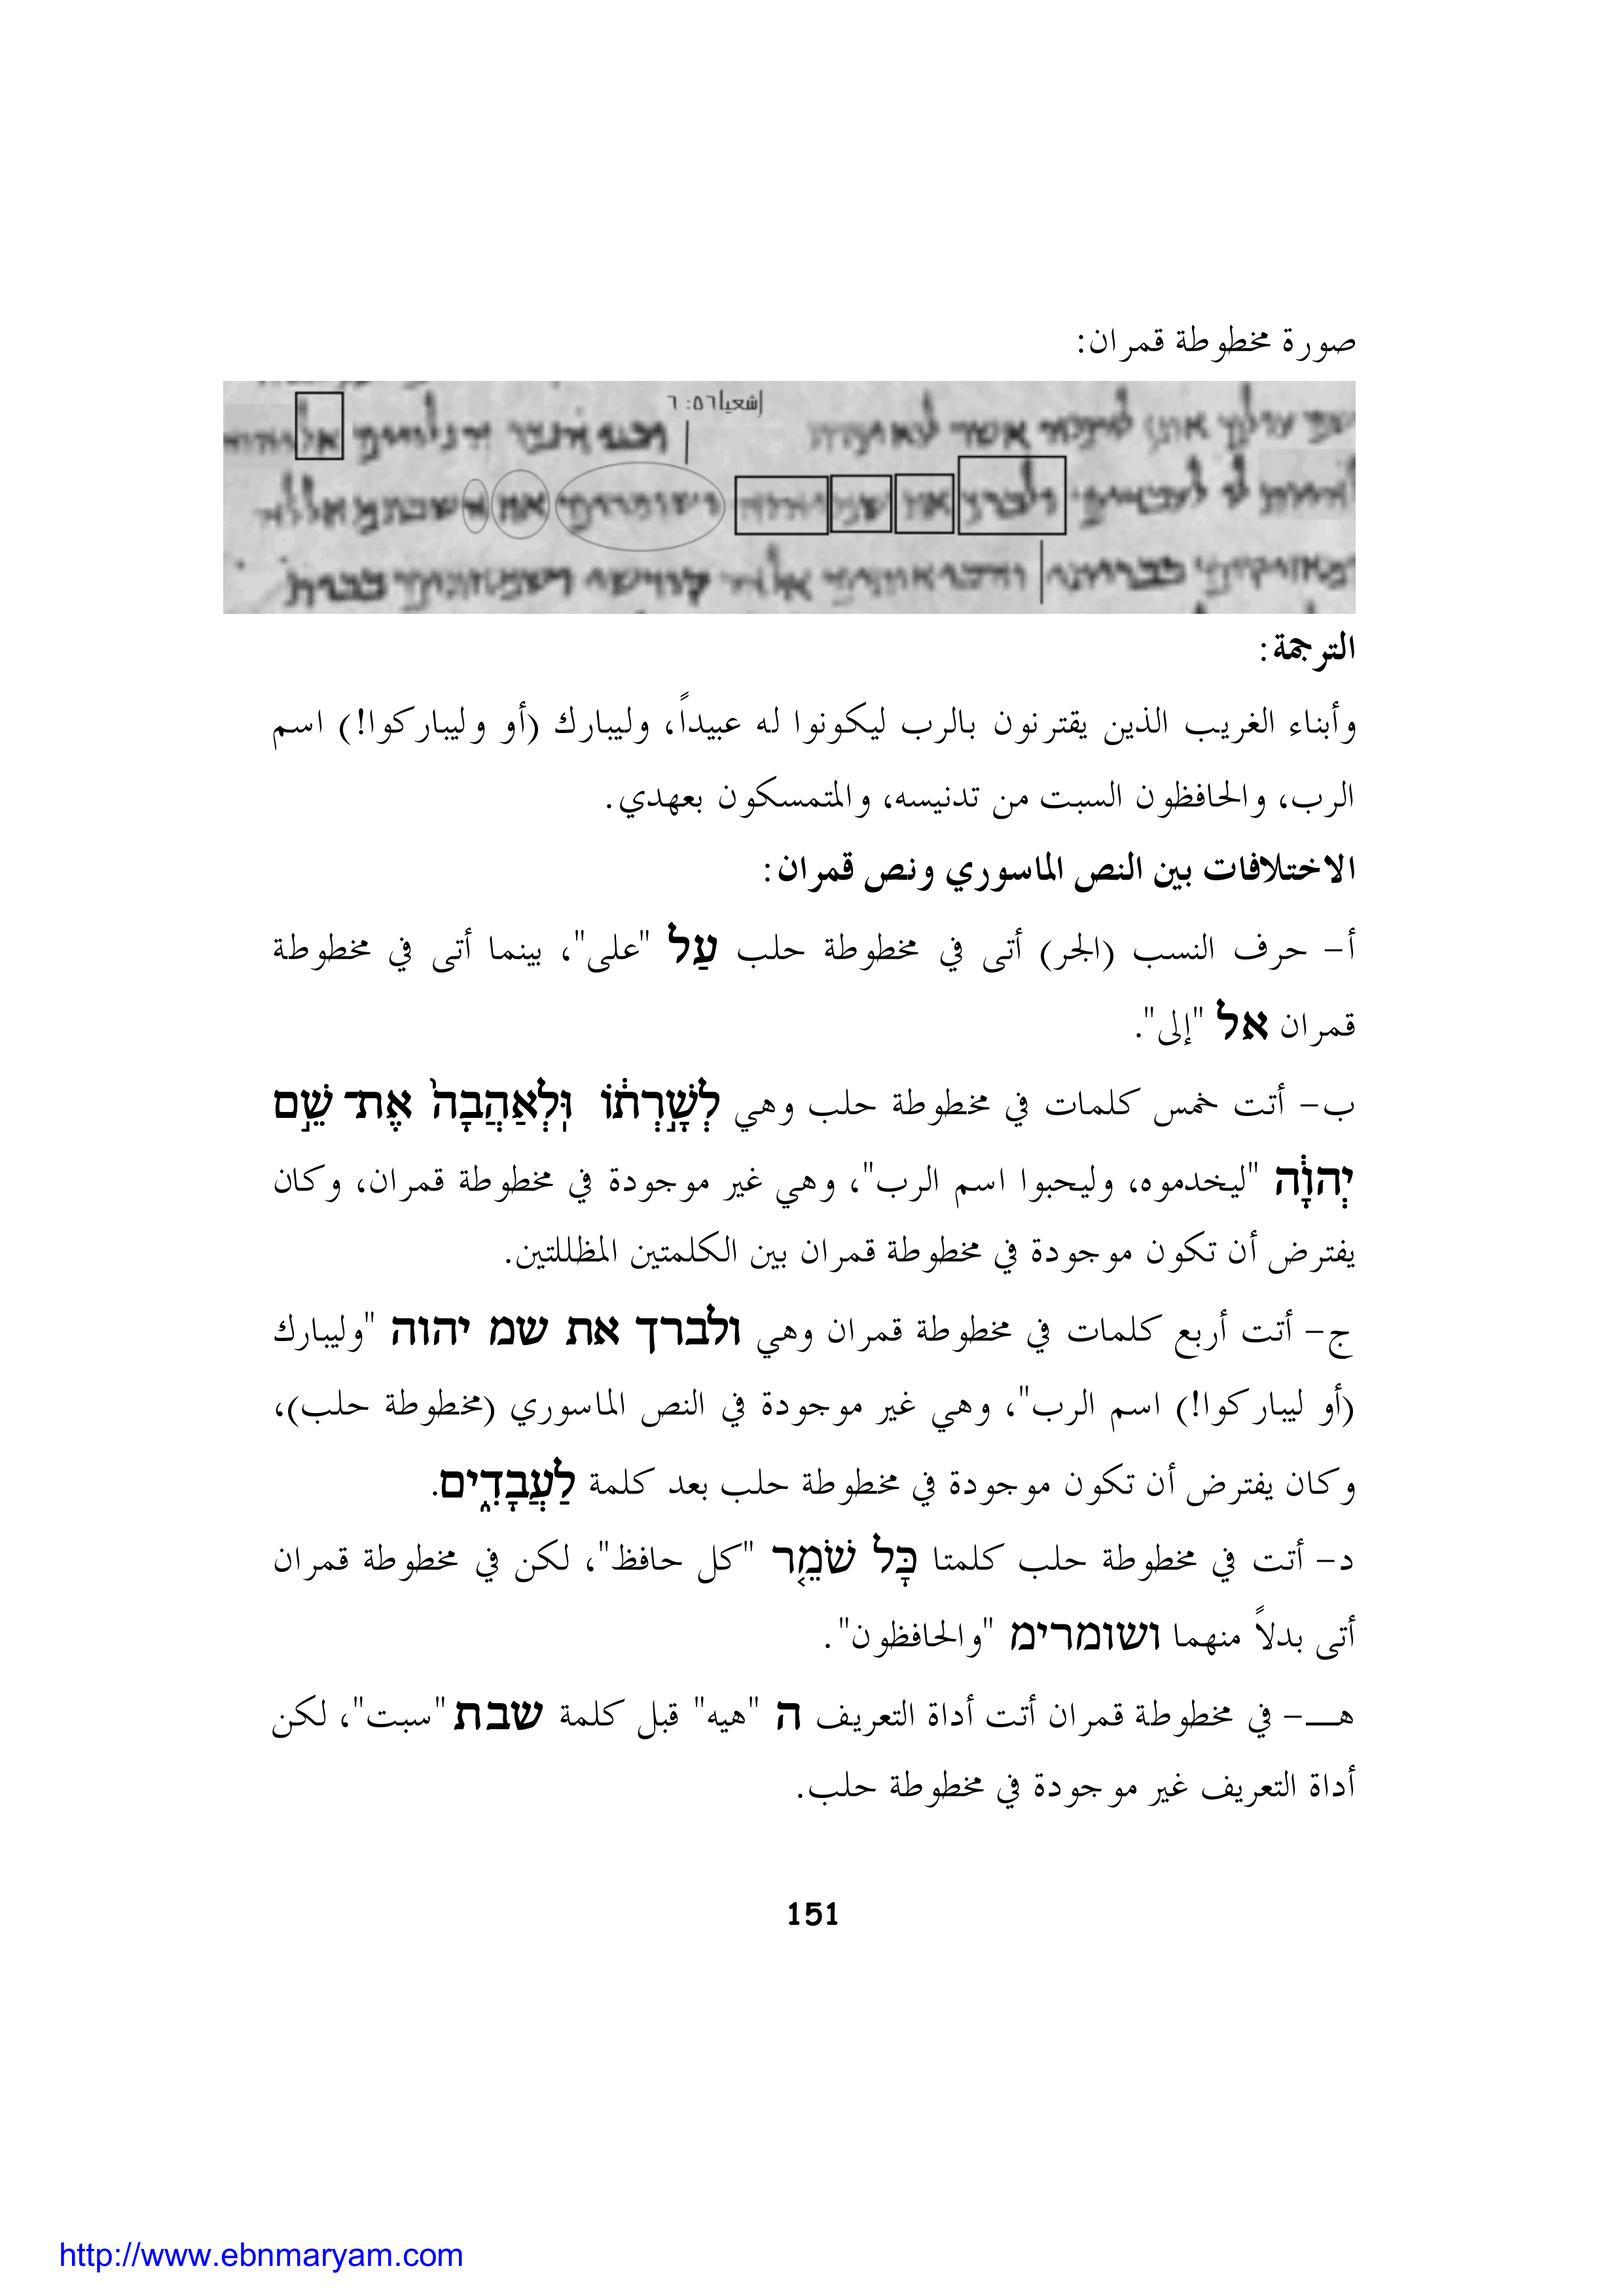 صورة مخطوطة قمران:
إشعيا ٥٦: ٦
الترجمة:
وأبناء الغريب الذين يقترنون بالرب ليكونوا له عبيداً، وليبارك (أو وليباركوا!) اسم
الرب، والحافظون السبت من تدنيسه، والمتمسكون بعهدي.
الاختلافات بين النص الماسوري ونص قمران:
أ- حرف النسب (الجر) أتى في مخطوطة حلب עַל "على"، بينما أتى في مخطوطة
قمران אל "إلى".
ب- أتت خمس كلمات في مخطوطة حلب وهي לְשָׁ֣רְת֔וֹ וּֽלְאַהֲבָה֙ אֶת־שֵׁ֣ם
יְהוָ֔ה "ليخدموه، وليحبوا اسم الرب"، وهي غير موجودة في مخطوطة قمران، وكان
يفترض أن تكون موجودة في مخطوطة قمران بين الكلمتين المظللتين.
ج- أتت أربع كلمات في مخطوطة قمران وهي ולברך את שמ יהוה "وليبارك
(أو ليباركوا!) اسم الرب"، وهي غير موجودة في النص الماسوري (مخطوطة حلب)،
وكان يفترض أن تكون موجودة في مخطوطة حلب بعد كلمة לַעֲבָדִ֑ים.
د- أتت في مخطوطة حلب كلمتا כָּל שֹׁמֵ֤ר "كل حافظ"، لكن في مخطوطة قمران
أتى بدلاً منهما ושומרימ "والحافظون".
هـ- في مخطوطة قمران أتت أداة التعريف ה "هيه" قبل كلمة שבת "سبت"، لكن
أداة التعريف غير موجودة في مخطوطة حلب.
151
http://www.ebnmaryam.com